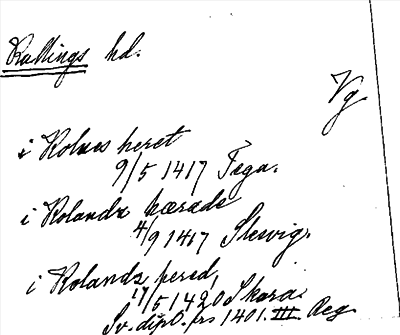 Kullings hd.
Vg
i Kolnes heret
9/5 1417 Fega.
i Kolandz hærade
4/9 1417 Slesvig.
i Kolandz hered,
17/5 1420 Skara.
Sv. dipl. frs 1401. III. Reg